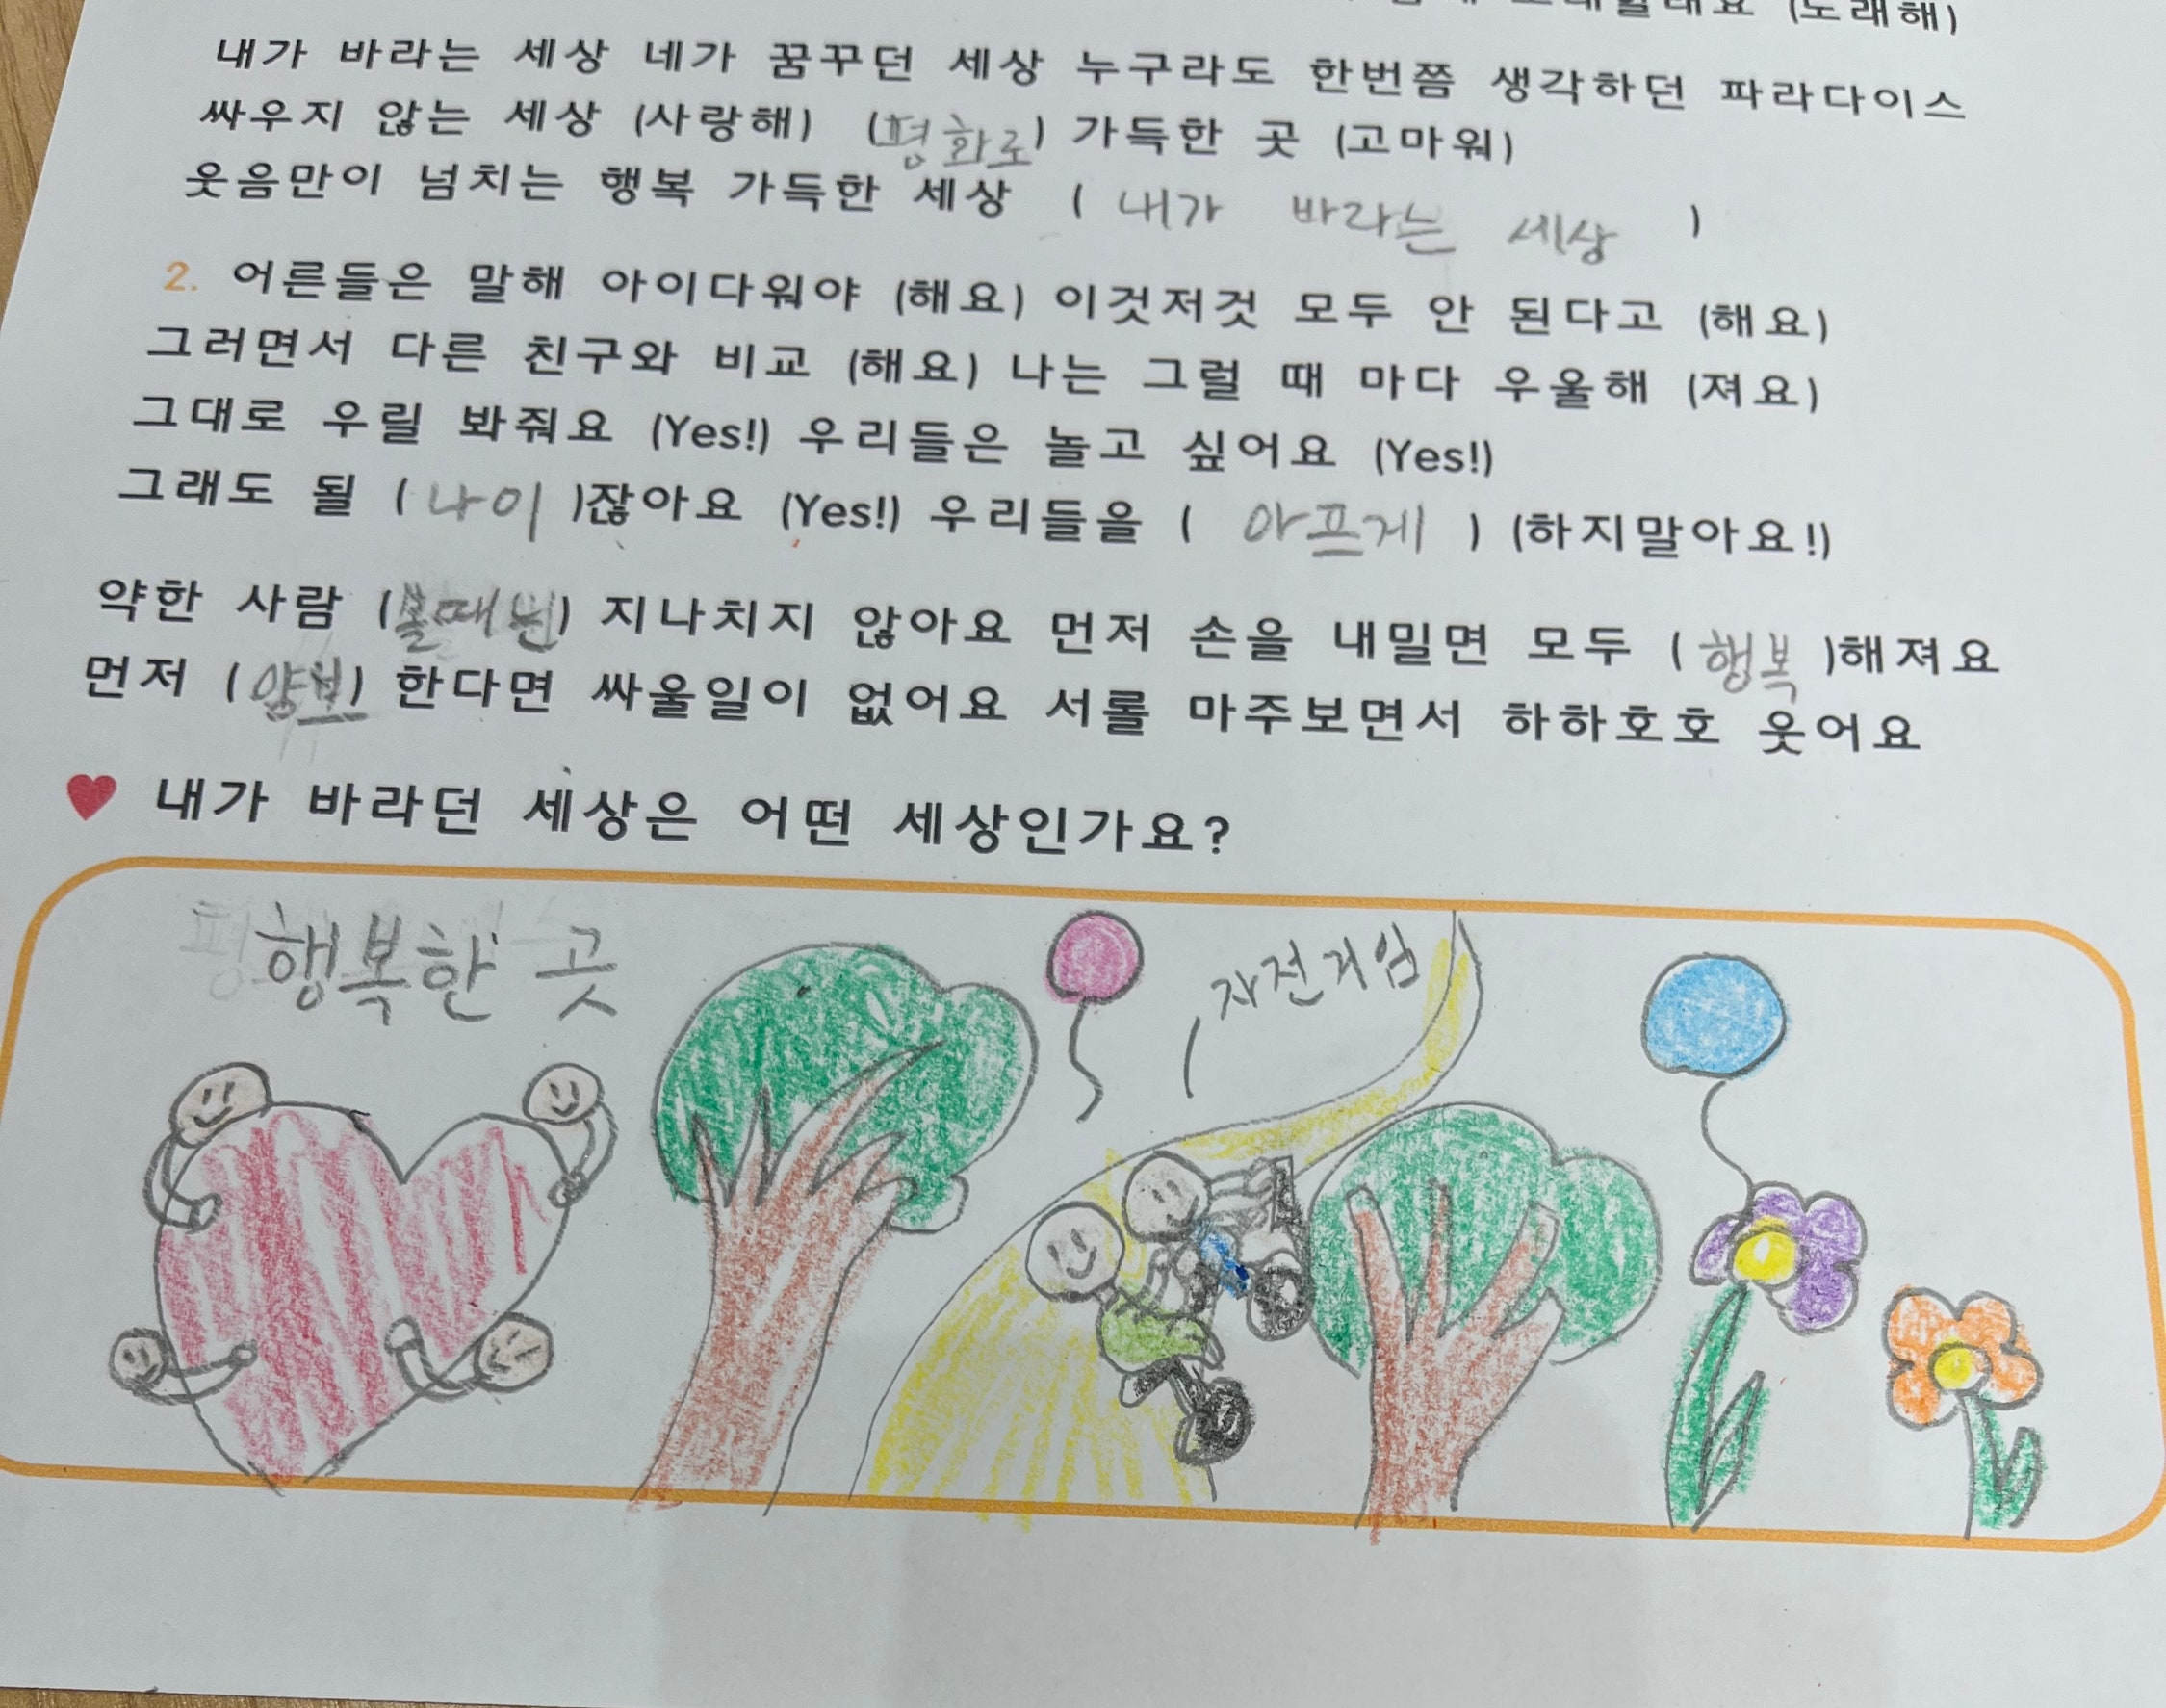 (노래해)
내가 바라는 세상 네가 꿈꾸던 세상 누구라도 한번쯤 생각하던 파라다이스
싸우지 않는 세상 (사랑해) (평화로) 가득한 곳 (고마워)
웃음만이 넘치는 행복 가득한 세상 ( 내가 바라는 세상 )
2. 어른들은 말해 아이다워야 (해요) 이것저것 모두 안 된다고 (해요)
그러면서 다른 친구와 비교 (해요) 나는 그럴 때 마다 우울해 (져요)
그대로 우릴 봐줘요 (Yes!) 우리들은 놀고 싶어요 (Yes!)
그래도 될 ( 나이 )잖아요 (Yes!) 우리들을 ( 아프게 ) (하지말아요!)
약한 사람 (볼때뷘) 지나치지 않아요 먼저 손을 내밀면 모두 ( 행복 )해져요
먼저 (양보) 한다면 싸울일이 없어요 서롤 마주보면서 하하호호 웃어요
♥ 내가 바라던 세상은 어떤 세상인가요?
행복한 곳
자전거임